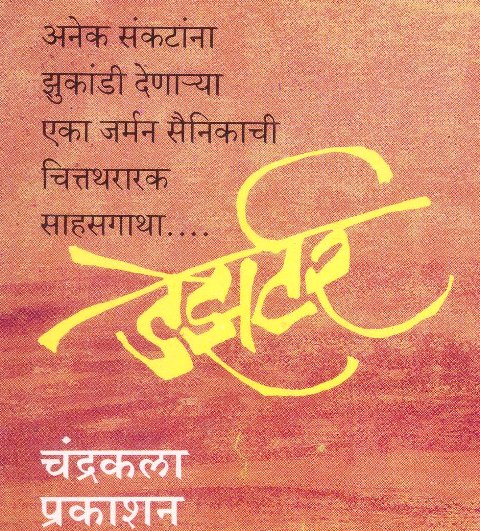 अनेक संकटांना
झुकांडी देणाऱ्या
एका जर्मन सैनिकाची
चित्तथरारक
साहसगाथा....
डेझर्टर
चंद्रकला
प्रकाशन